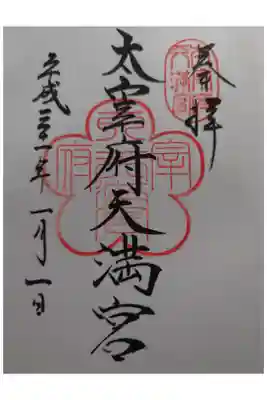 奉拝
太宰府天満宮
平成三十一年一月一日